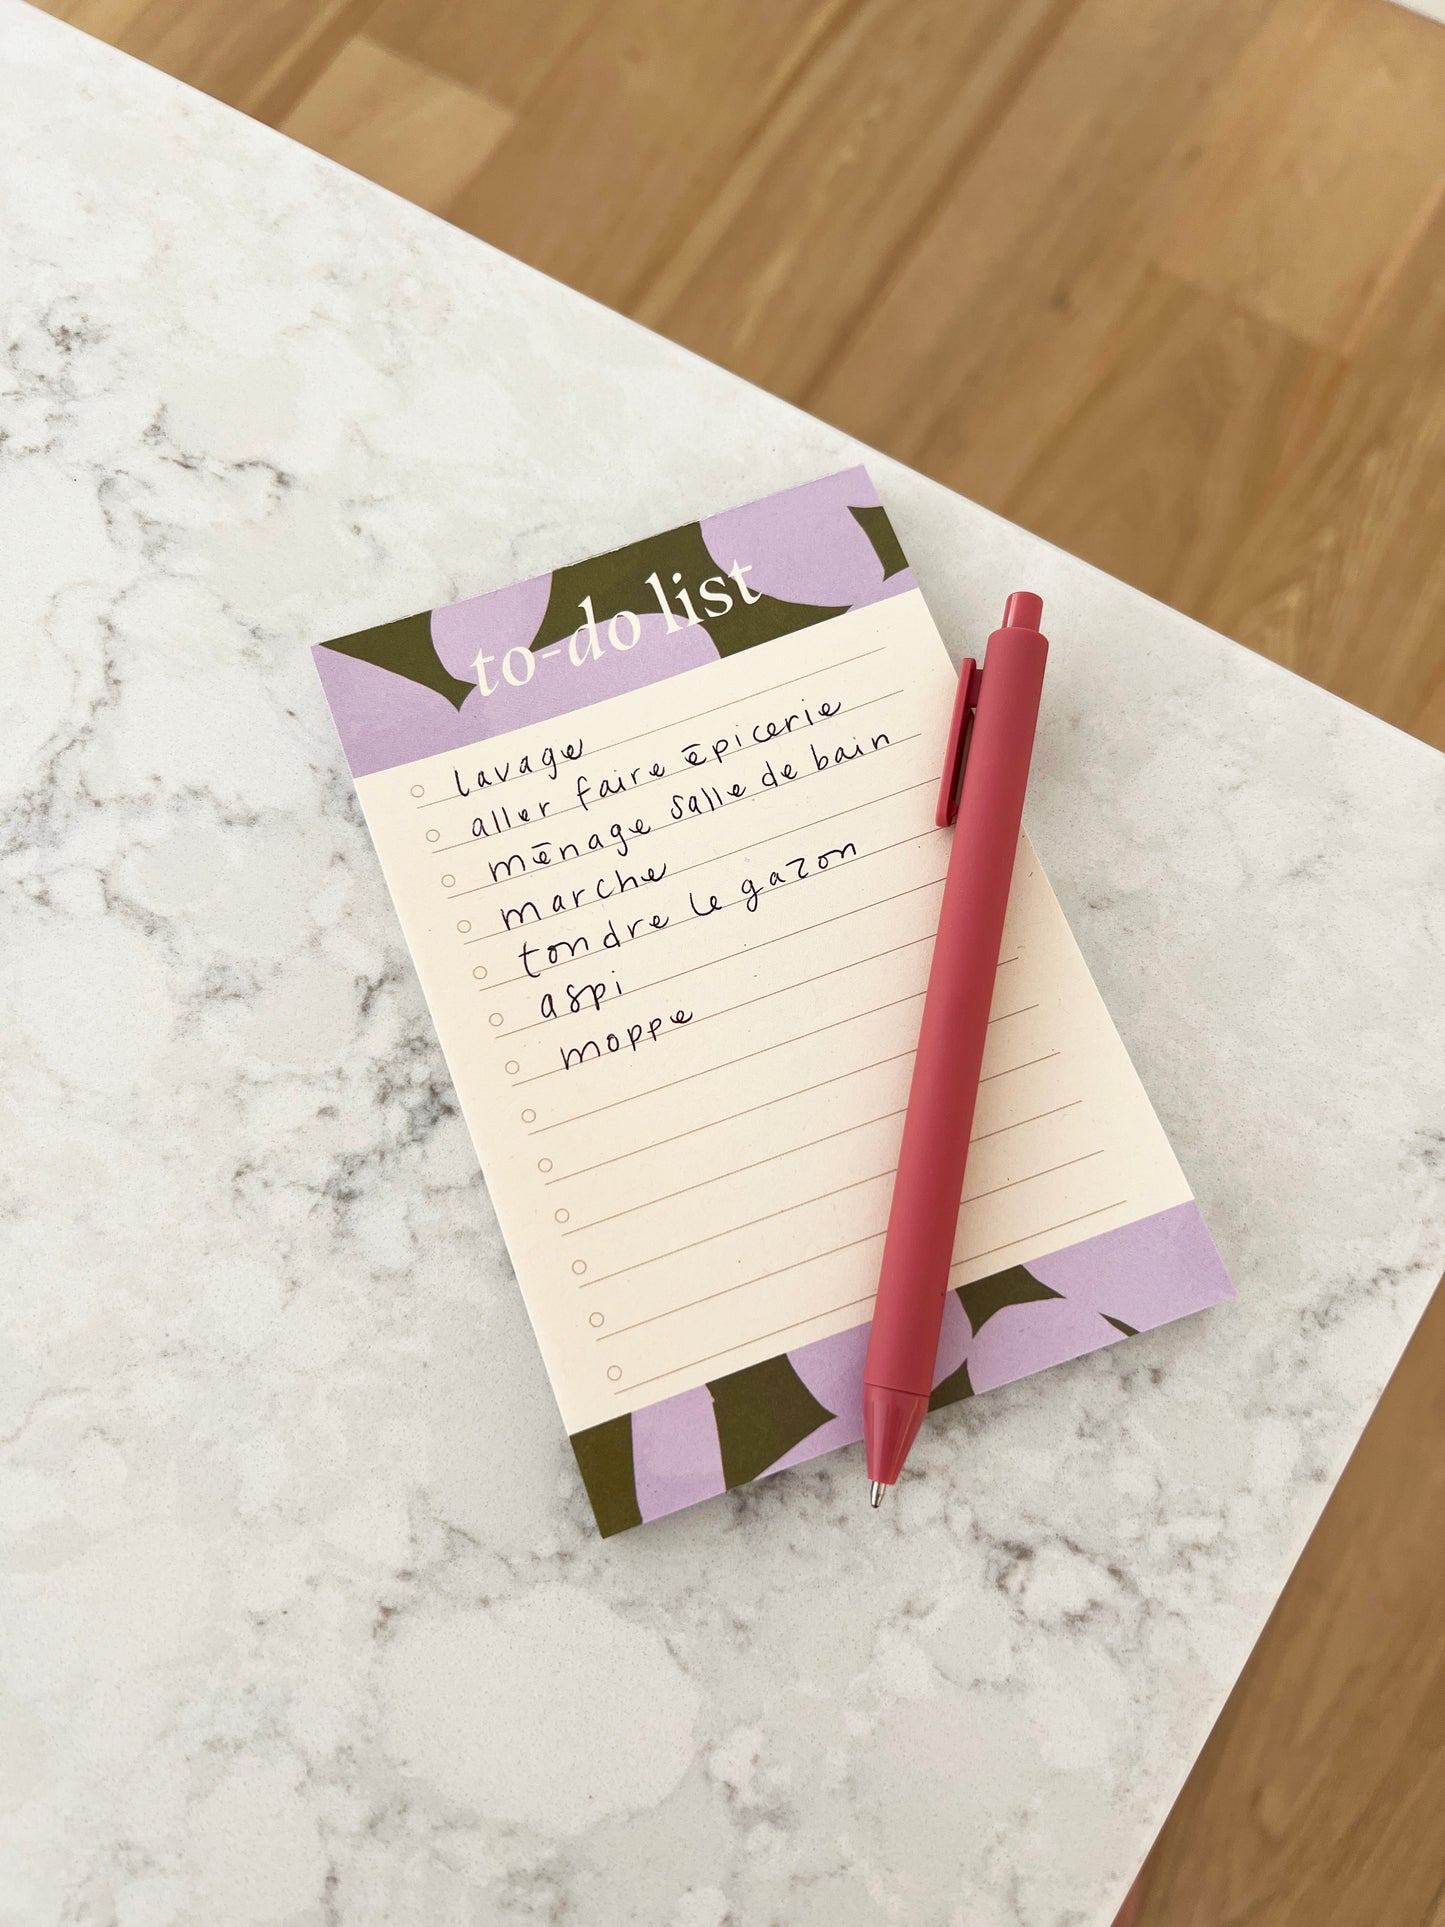 to-do list
lavage
aller faire épicerie
ménage salle de bain
marche
tondre le gazon
aspi
moppe